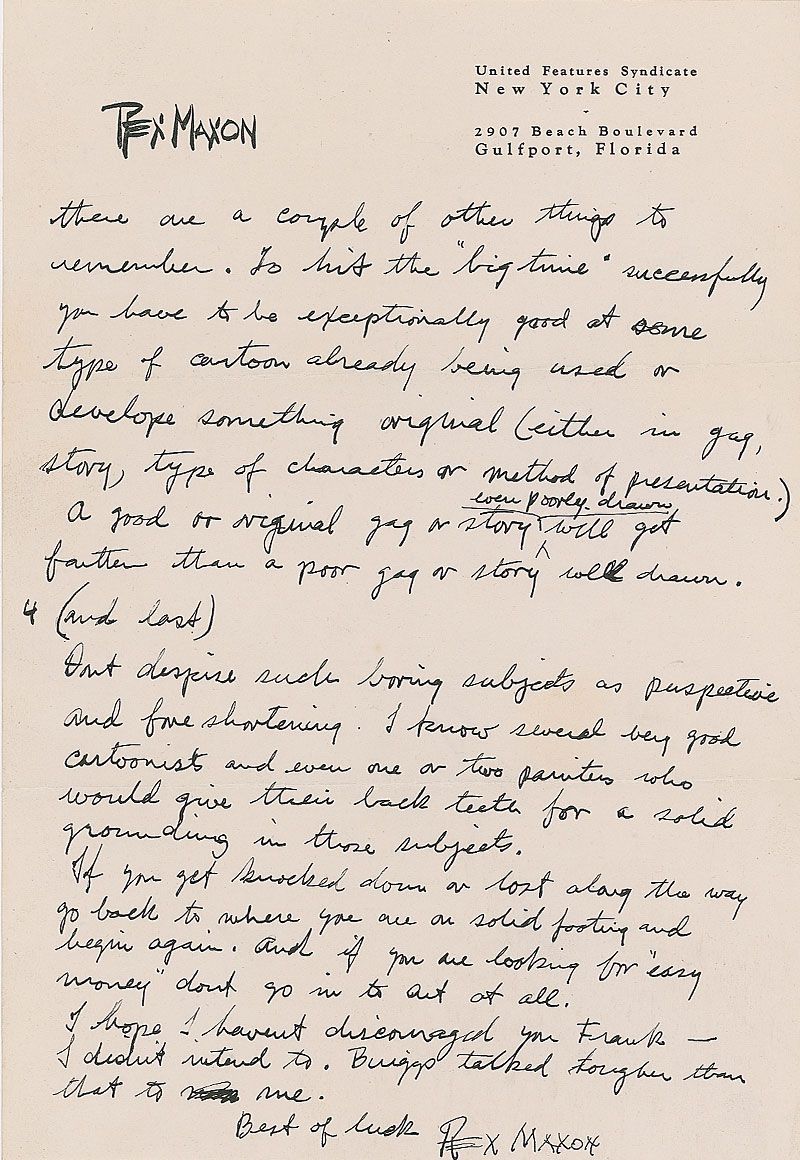 REX MAXON
United Features Syndicate
New York City
-
2907 Beach Boulevard
Gulfport, Florida
there are a couple of other things to
remember. To hit the "big time" successfully
you have to be exceptionally good at some
type of cartoon already being used or
develope something original (either in gag,
story, type of characters or method of presentation.)
even poorly drawn
A good or original gag or story will get
farther than a poor gag or story well drawn.
4 (and last)
Dont despise such boring subjects as perspective
and foreshortening. I know several very good
cartoonists and even one or two painters who
would give their back teeth for a solid
grounding in those subjects.
If you get knocked down or lost along the way
go back to where you are on solid footing and
begin again. And if you are looking for "easy
money" dont go in to art at all.
I hope I havent discouraged you Frank —
I didn't intend to. Briggs talked tougher than
that to me.
Best of luck REX MAXON